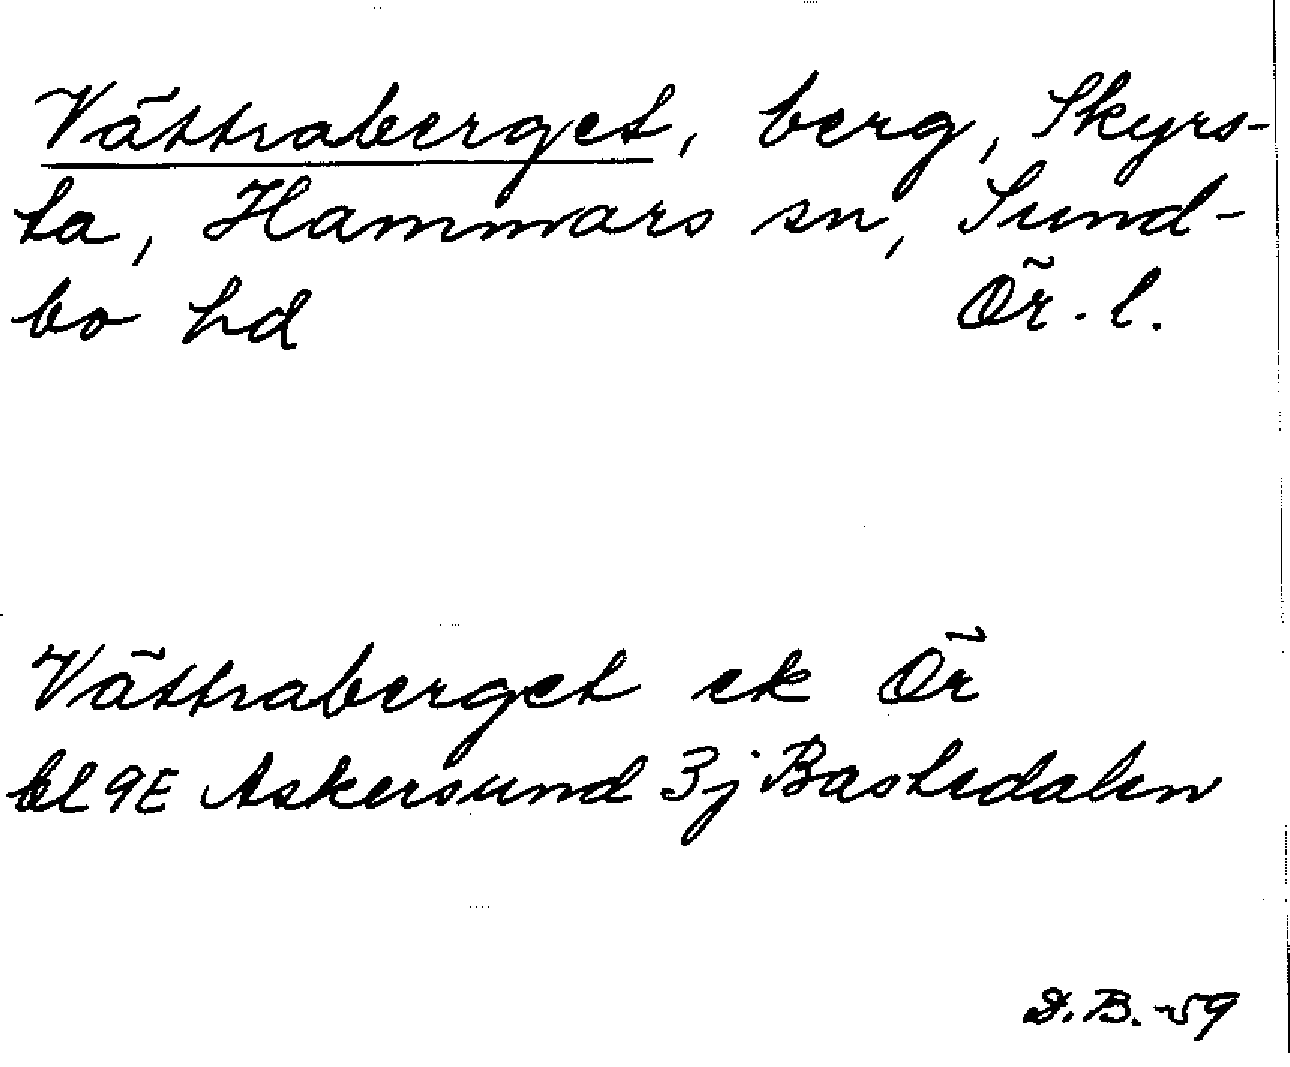 Vättraberget, berg, Skyrs-
ta, Hammars sn, Sund-
bo hd Ör. l.
Vättraberget ek Ör
bl 9E Askersund 3j Bastedalen
D.B. -59